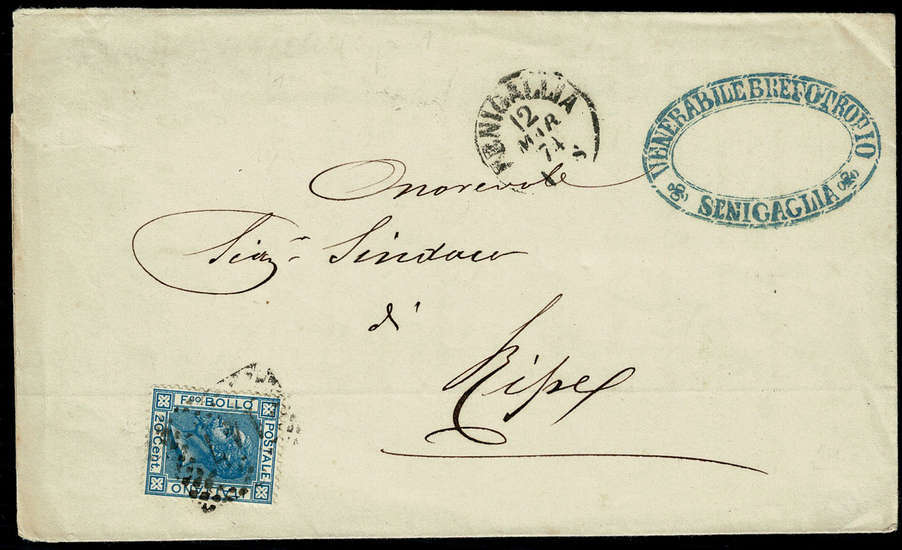 SENIGALLIA
12
MAR
74
VENERABILE BREFOTROFIO
SENIGAGLIA
Onorevole
Sig.r Sindaco
di
Ripe
F.co BOLLO
POSTALE
ITALIANO
20 Cent